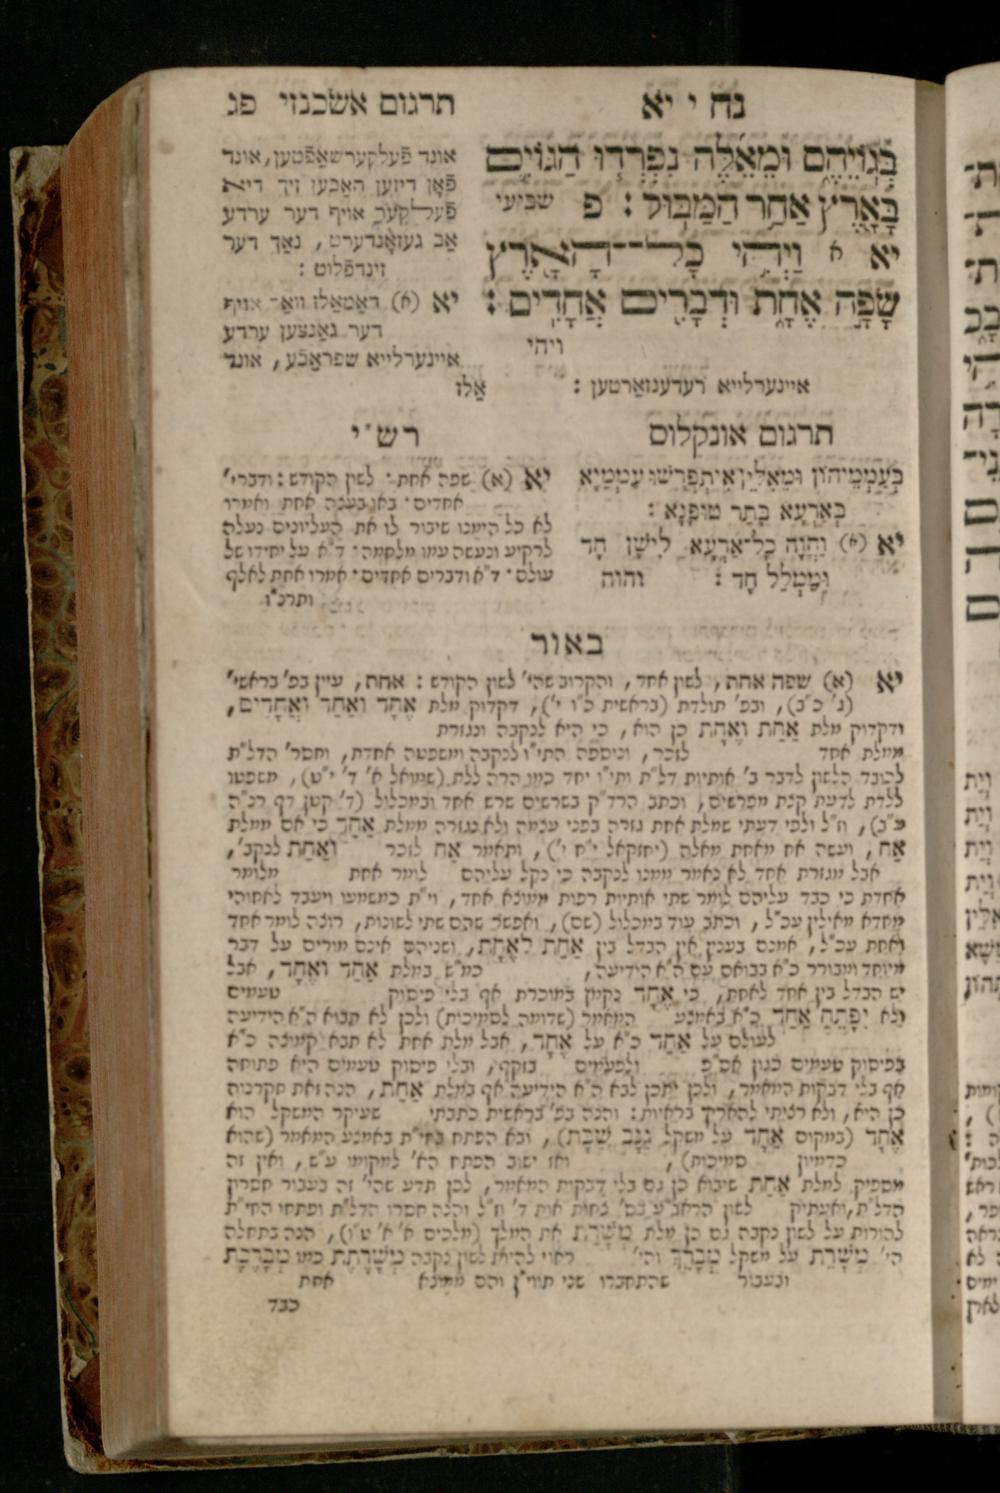 נח י יא
תרגום אשכנזי פג
בְּגוֹיֵהֶם וּמֵאֵלֶּה נִפְרְדוּ הַגּוֹיִם
בָּאָרֶץ אַחַר הַמַּבּוּל : פ שביעי
יא א וַיְהִי כָל־הָאָרֶץ
שָׂפָה אֶחָת וּדְבָרִים אֲחָדִים :
ויהי
אונד פֿעלקערשאַפֿטען, אונד
פֿאָן דיזען האַבען זיך דיא
פֿעלקער אויף דער ערדע
אב געזאָנדערט, נאַך דער
זינדפֿלוט :
יא (א) דאַמאַלז וואר אויף
דער גאַנצען ערדע
איינערלייא שפּראַכֿע, אונד
איינערלייא רעדענזאַרטען :
אַלז
תרגום אונקלוס
בְּעַמְמֵיהוֹן וּמֵאִלֵּין אִיתְפְּרָשׁוּ עַמְמַיָּא
בְּאַרְעָא בָּתַר טוֹפָנָא :
יא (א) וַהֲוָה כָל־אַרְעָא לִישָׁן חַד
וּמַמְלַל חָד : והוה
רש״י
יא (א) שפה אחת · לשון הקודש : ודברי׳
אחדים · באו בעצה אחת ואמרו
לא כל הימנו שיבור לו את העליונים נעלה
לרקיע ונעשה עמו מלחמה · ד״א על יחידו של
עולם · ד״א ודברים אחדים · אמרו אחת לאלף
ותרנ״ו
באור
יא (א) שפה אחת, לשון אחד, והקרוב שהי׳ לשון הקודש : אחת, עיין בפ׳ בראשי׳
(ג׳ כ״ב), ובפ׳ תולדת (בראשית כ״ו י׳), דקדוק מלת אֶחָד וְאַחַד וַאֲחָדִים,
ודקדוק מלת אַחַת וְאֶחָת כן הוא, כי היא לנקבה ונגזרת
ממלת אחד לזכר, וניספה התי״ו לנקבה ומשפטה אחדת, וחסר׳ הדל״ת
לכובד הלשון לדבר ב׳ אותיות דל״ת ותי״ו יחד כמו הרה ללת (שמואל א׳ ד׳ י״ט), משפטו
ללדת לדעת קצת מפרשים, וכתב הרד״ק בשרשים שרש אחד ובמכלול (ד׳ קטן דף רנ״ה
ע״ב), וז״ל ולפי דעתי שמלת אחת גזרה בפני עצמה ולא נגזרה ממלת אַחַד כי אם ממלת
אַח, ועשה אח מאחת מאלה (יחזקאל י״ח י׳), ותאמר אַח לזכר וְאַחַת לנקב׳,
אבל מגזרת אחד לא נאמר ממנו לנקבה כי נקל עליהם לומר אחת מלומר
אחדת כי כבד עליהם לומר שתי אותיות רפות ממוצא אחד, וי״ת כמשמעו ויעבד לאחוהי
מחדא מאילין עכ״ל, וכתב עוד במכלול (שם), ואפשר שהם שתי לשונות, רוצה לומר אחד
ואחת עכ״ל, אמנם בענין אין הבדל בין אַחַת לְאֶחָת, ושניהם אינם מורים על דבר
מיוחד ומבורר כ״א בבואם עם ה״א הידיעה, כמ״ש במלת אַחַד וְאֶחָד, אבל
יש הבדל בין אחד לאחת, כי אֶחָד נקמץ במוכרת אף בלי פיסוק טעמים
ולא יִפָּתֵחַ אַחַד כ״א באמצע המאמר (שדומה לסמיכית) ולכן לא תבוא ה״א הידיעה
לעולם על אַחַד כ״א על אֶחָד, אבל מלת אחת לא תבא קמוצה כ״א
בפיסוק טעמים כגון אס״פ ולפעמים בזקף, ובלי פיסוק טעמים היא פתוחה
אף בלי דבקות המאמר, ולכן יתכן לבא ה״א הידיעה אף במלת אַחַת, הנה זאת חקרנוה
כן היא, ולא רציתי להאריך בראיות : והנה בפ׳ בראשית כתבתי שעיקר המשקל הוא
אֶחָד (במקום אַחָד על משקל גַנָּב שַׁבָּת), ובא הפתח בחי״ת באמצע המאמר (שהוא
כדמיון סמיכות), ואז ישוב הפתח הא׳ למקומו ע״ש, ואין זה
מספיק למלת אַחַת שיבוא כן גם בלי דבקות המאמר, לכן תדע שהי׳ זה בעבור חסרון
הדל״ת, ואעתיק לשון הראב״ע בס׳ צחות אות ד׳ וז״ל והנה חסרו הדל״ת ופתחו החי״ת
להורות על לשון נקבה גם כן מלת מְשָׁרַת את המלך (מלכים א׳ א׳ ט״ו), הנה בתחלה
הי׳ מְשָׁרֵת על משקל מְבָרֵךְ והי׳ ראוי להיות לשון נקבה מְשָׁרֶתֶת כמו מְבָרֶכֶת
ובעבור שהתחברו שני תווי״ן והם ממוצא אחת
כבד